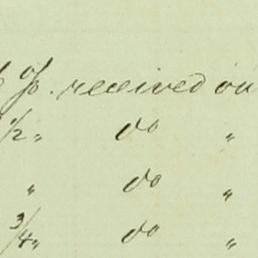 % received on
1/2 " do "
" do "
3/4 " do "